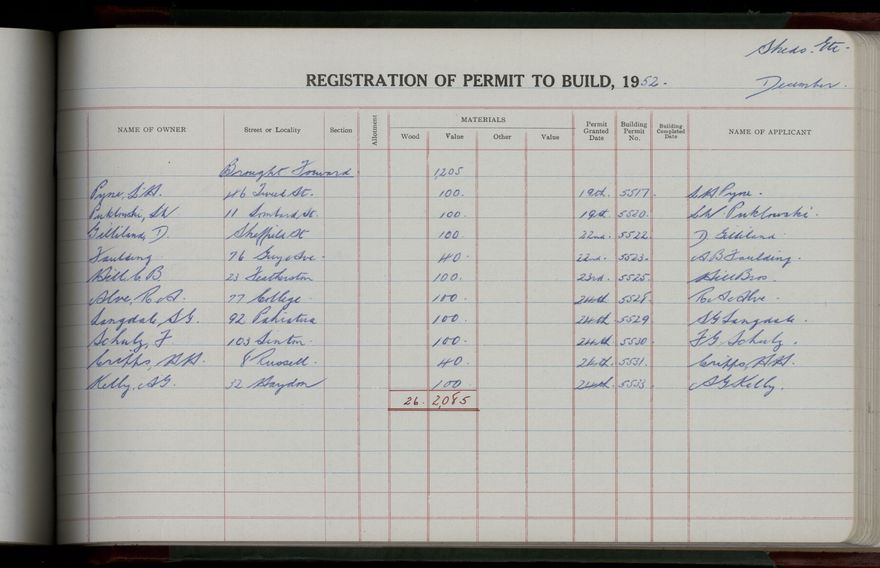 Sheds. Etc.
REGISTRATION OF PERMIT TO BUILD, 1952.
December.
NAME OF OWNER Street or Locality Section Allotment MATERIALS Permit Granted Date Building Permit No. Building Completed Date NAME OF APPLICANT
Wood Value Other Value
Brought Forward 1,205
Pyne, 46 Tweed St. 100. 19th. 5517. Pyne.
Puklowski, SW 11 Lombard St. 100. 19th. 5520. SW. Puklowski.
Gilliland, D. Sheffield St 100. 22nd. 5522. D. Gilliland
Faulding 76 Guy Ave. 40. 22nd. 5523. A B Faulding.
Hill C B. 23 Featherston 100. 23rd. 5525. Hill Bros.
Alve, R. A. 77 College. 100. 24th. 5528. R. A. Alve.
Langdale, S.G. 92 Pahiatua 100. 24th. 5529. SG Langdale.
Schulz, F 103 Linton. 100. 24th. 5530. F G. Schulz.
Cripps, 8 Russell. 40. 24th. 5531. Cripps,
Kelly, AG. 32 Haydon 100 24th. 5533. AG Kelly.
26. 2,085